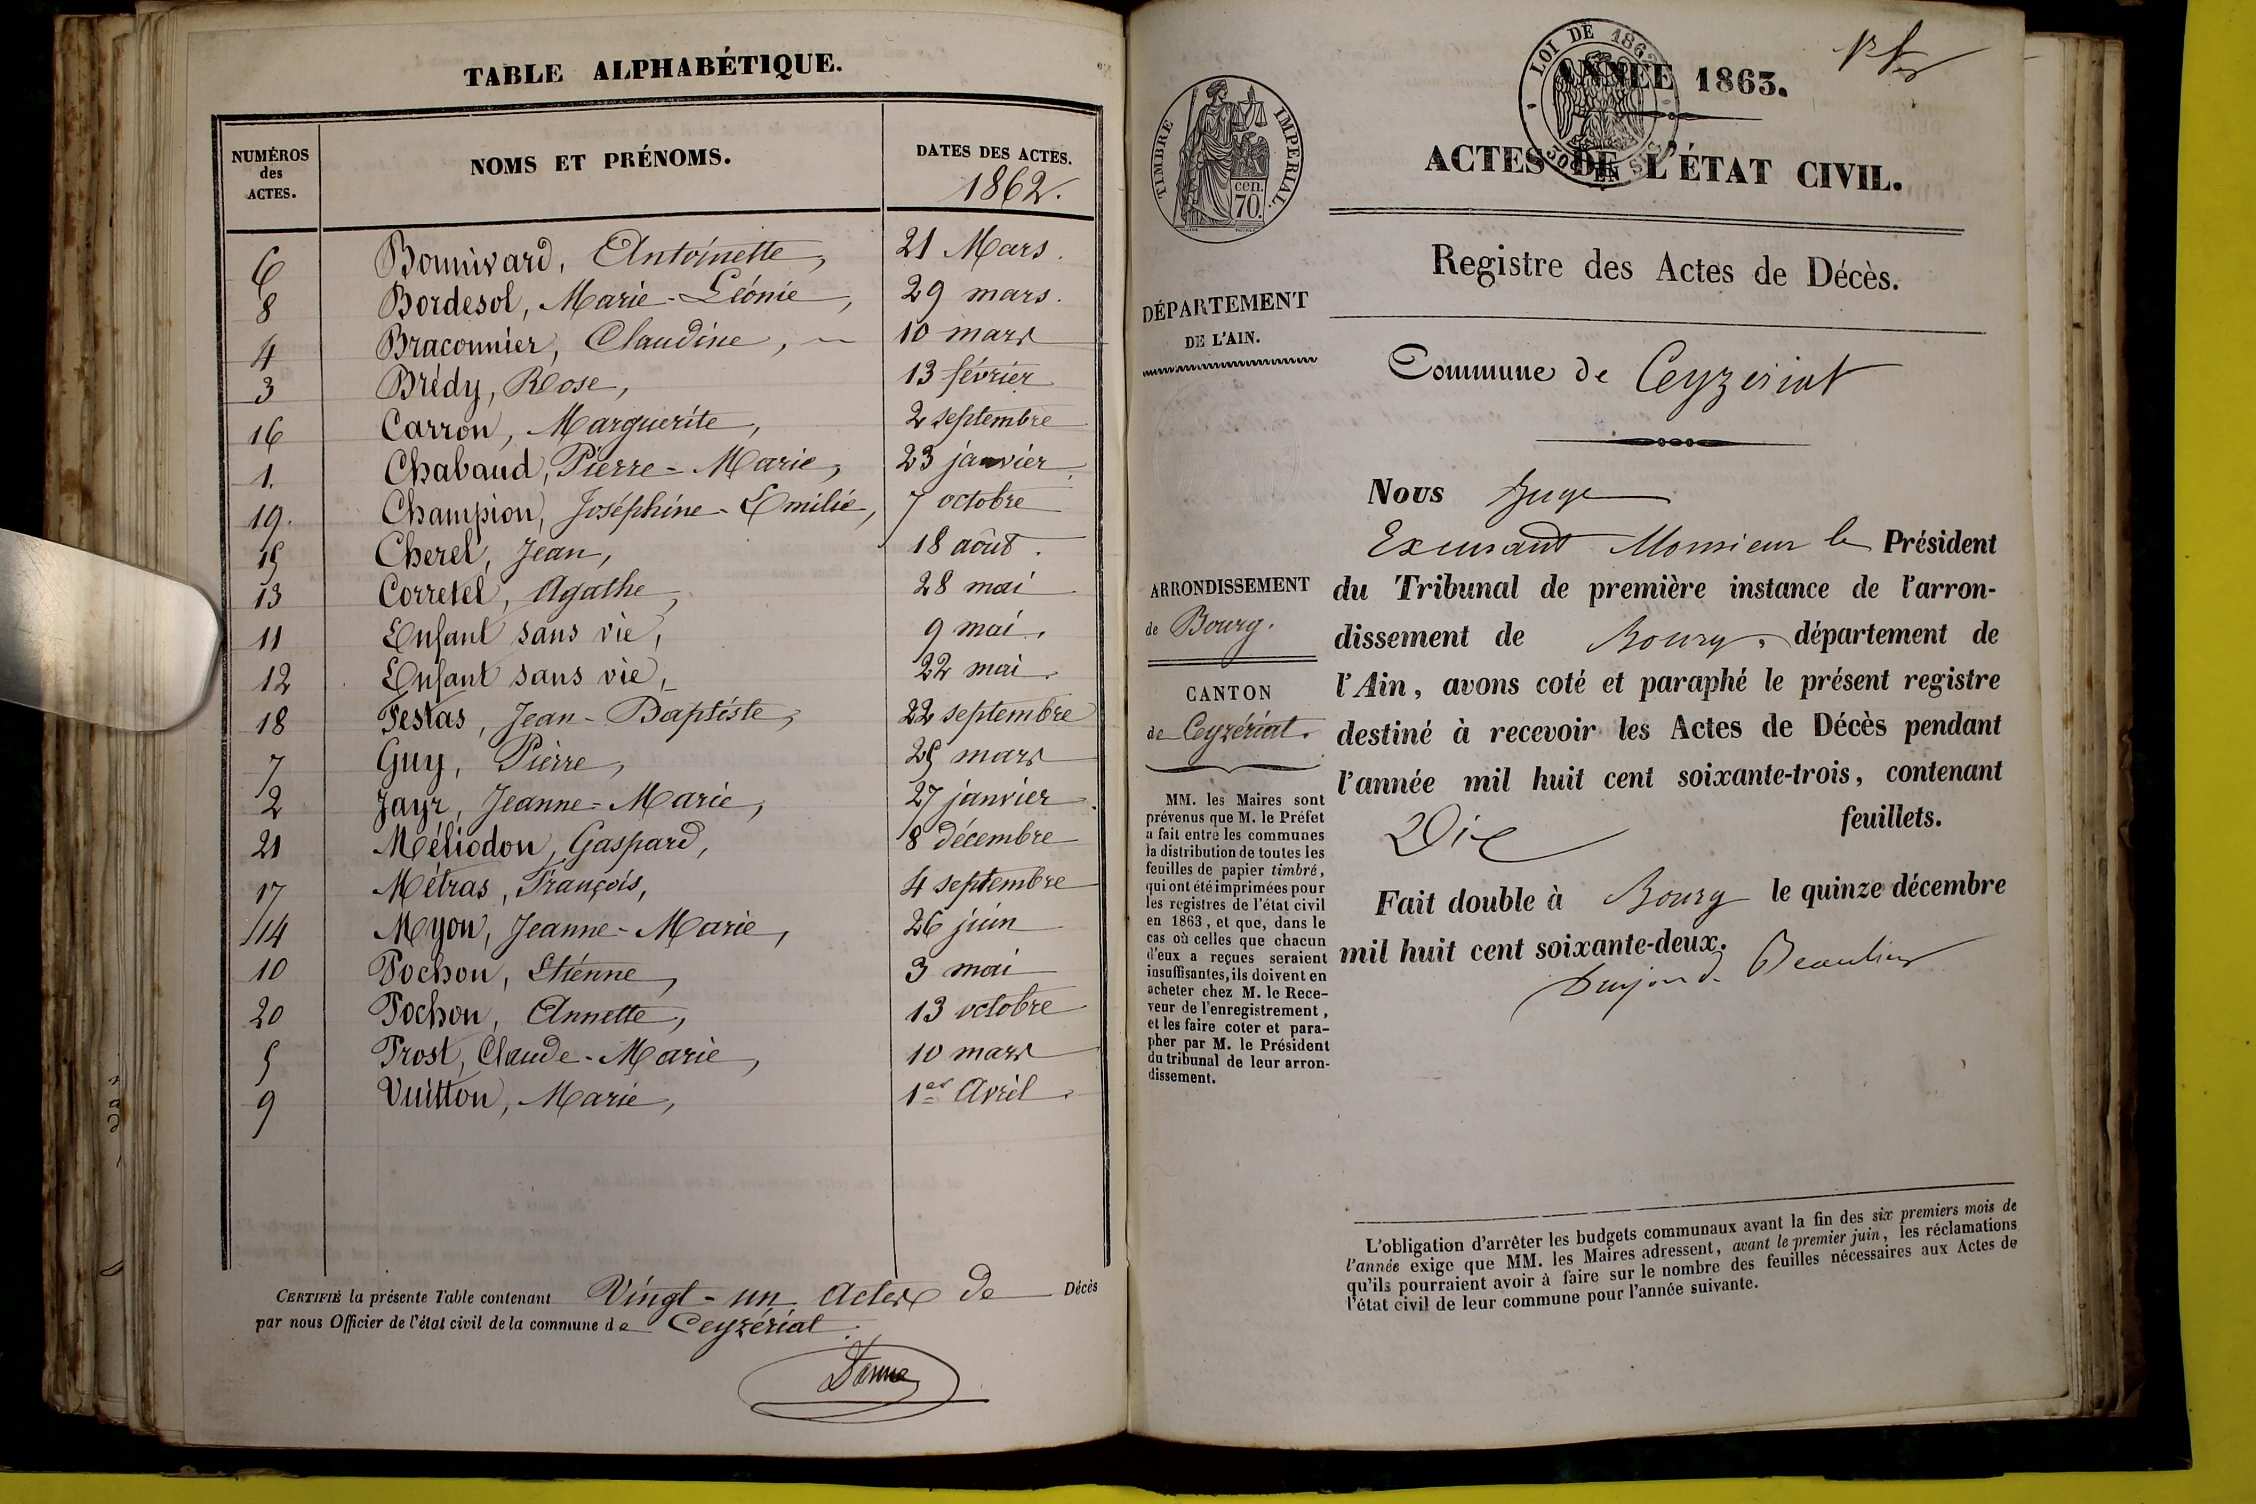 TABLE ALPHABÉTIQUE.
NUMÉROS des ACTES.
NOMS ET PRÉNOMS.
DATES DES ACTES.
1862.
6 Bonnivard, Antoinette, 21 Mars.
8 Bordesol, Marie-Léonie, 29 mars.
4 Braconnier, Claudine, 10 mars
3 Brédy, Rose, 13 février
16 Carron, Marguerite, 2 septembre
1. Chabaud, Pierre-Marie, 23 janvier.
19. Champion, Joséphine-Emilie, 7 octobre
15 Cherel, Jean, 18 août.
13 Corretel, Agathe, 28 mai
11 Enfant sans vie, 9 mai.
12 Enfant sans vie, 22 mai.
18 Festas, Jean-Baptiste, 22 septembre
7 Guy, Pierre, 25 mars
2 Jayr, Jeanne=Marie, 27 janvier.
21 Méliodon, Gaspard, 8 décembre
17 Métras, François, 4 septembre
14 Myon, Jeanne-Marie, 26 juin
10 Pochon, Etienne, 3 mai
20 Pochon, Annette, 13 octobre
5 Prost, Claude-Marie, 10 mars
9 Vuitton, Marie, 1er Avril.
CERTIFIÉ la présente Table contenant Vingt-un Actes de Décès
par nous Officier de l'état civil de la commune de Ceyzériat.
LOI DE 1862
50 C. EN SUS
ANNÉE 1863.
ACTES DE L'ÉTAT CIVIL.
TIMBRE IMPERIAL.
cen.
70.
Registre des Actes de Décès.
DÉPARTEMENT
DE L'AIN.
Commune de Ceyzeriat
Nous Juge
Excusant Monsieur le Président
du Tribunal de première instance de l'arron-
dissement de Bourg, département de
l'Ain, avons coté et paraphé le présent registre
destiné à recevoir les Actes de Décès pendant
l'année mil huit cent soixante-trois, contenant
Dix feuillets.
Fait double à Bourg le quinze décembre
mil huit cent soixante-deux.
Beaulieu
ARRONDISSEMENT
de Bourg.
CANTON
de Ceyzériat.
MM. les Maires sont
prévenus que M. le Préfet
a fait entre les communes
la distribution de toutes les
feuilles de papier timbré,
qui ont été imprimées pour
les registres de l'état civil
en 1863, et que, dans le
cas où celles que chacun
d'eux a reçues seraient
insuffisantes, ils doivent en
acheter chez M. le Rece-
veur de l'enregistrement,
et les faire coter et para-
pher par M. le Président
du tribunal de leur arron-
dissement.
L'obligation d'arrêter les budgets communaux avant la fin des six premiers mois de
l'année exige que MM. les Maires adressent, avant le premier juin, les réclamations
qu'ils pourraient avoir à faire sur le nombre des feuilles nécessaires aux Actes de
l'état civil de leur commune pour l'année suivante.